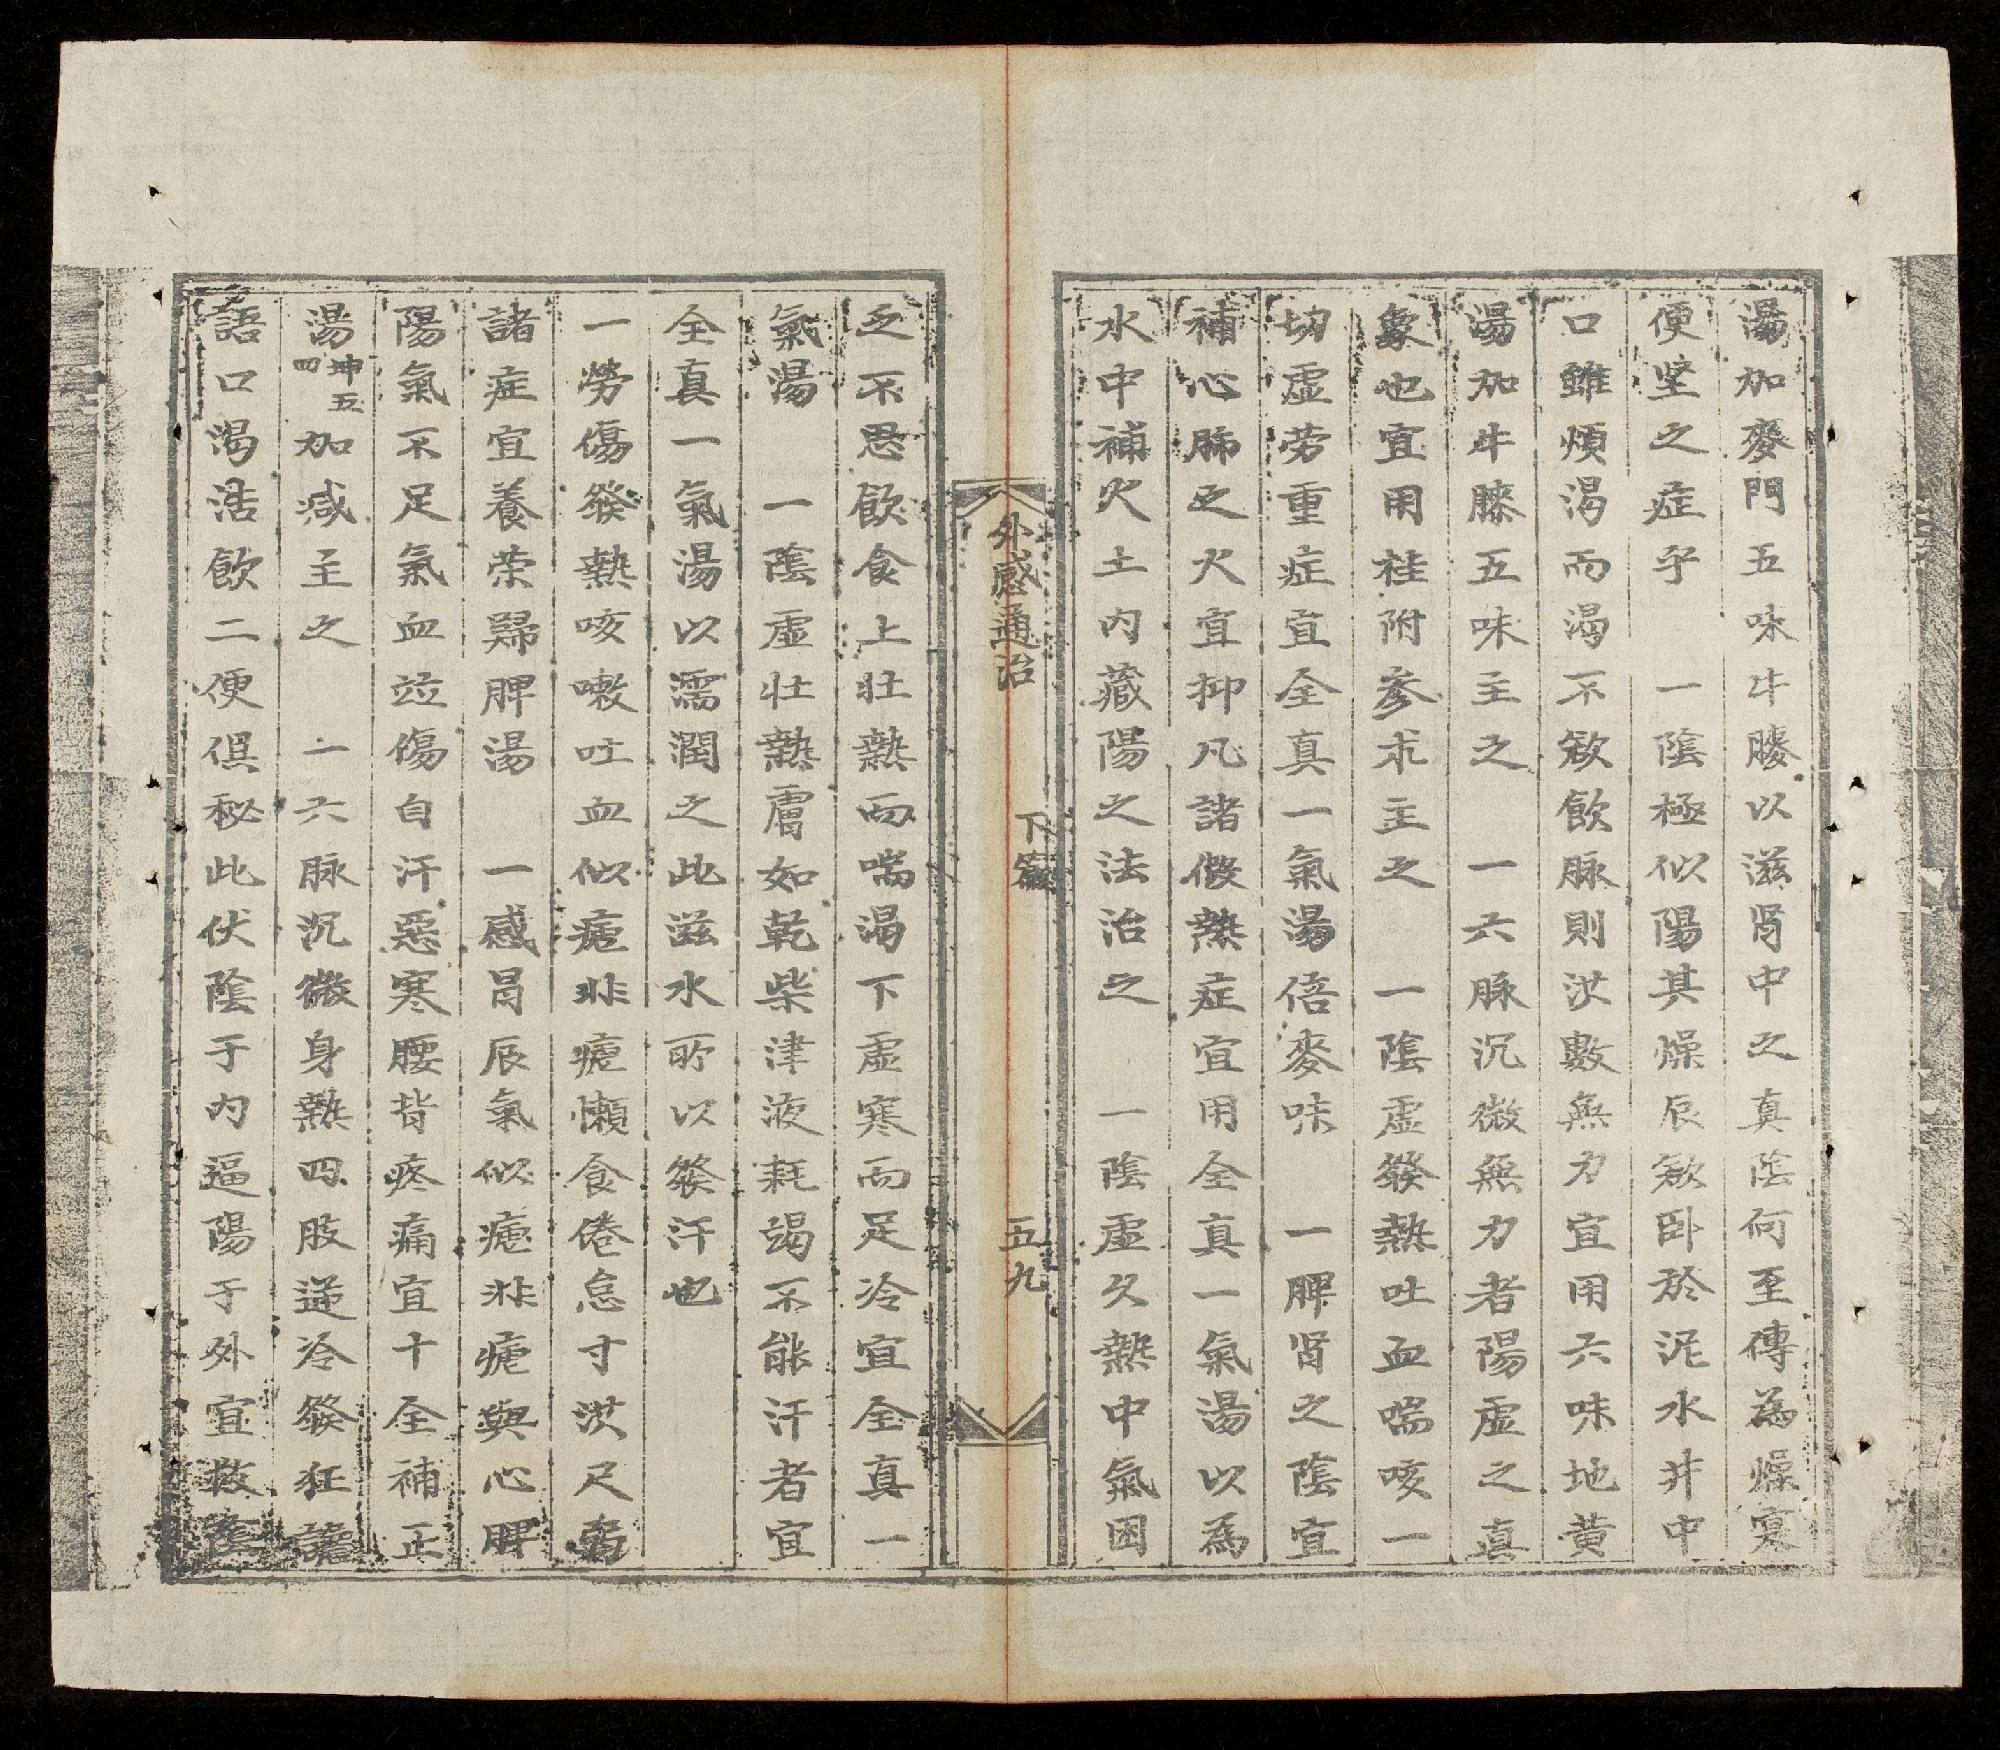 湯加麥門五味牛膝以滋腎中之真陰何至傳為燥寔
便坚之症乎　一陰極似陽其燥辰欲卧於泥水井中
口雖煩渴而渴不欲飲脉則洪數無力宜用六味地黄
湯加牛膝五味主之　一六脉沉微無力者陽虚之真
象也宜用桂附參朮主之　一陰虚發熱吐血喘咳一
切虚劳重症宜全真一氣湯倍麥味　一脾肾之陰宜
補心肺之火宜抑凡諸假熱症宜用全真一氣湯以為
水中補火土内藏陽之法治之　一陰虚久熱中氣困
外感通治　下篇　五九
乏不思飲食上壯熱而喘渴下虚寒而足冷宜全真一
氣湯　一陰虚壯熱膚如乾柴津液耗竭不能汗者宜
全真一氣湯以濡潤之此滋水所以發汗也
一勞傷發熱咳嗽吐血似瘧非瘧懶食倦怠寸洪尺弱
諸症宜養荣歸脾湯　一感冒辰氣似瘧非瘧與心脾
陽氣不足氣血竝傷自汗惡寒腰背疼痛宜十全補正
湯坤五四加减主之　一六脉沉微身熱四肢逆冷發狂譫
語口渴浩飲二便俱秘此伏陰于内逼陽于外宜救陰